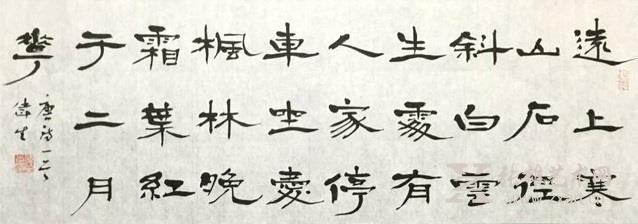 遠上寒
山石徑
斜白雲
生處有
人家停
車坐愛
楓林晚
霜葉紅
于二月
華
唐詩一首